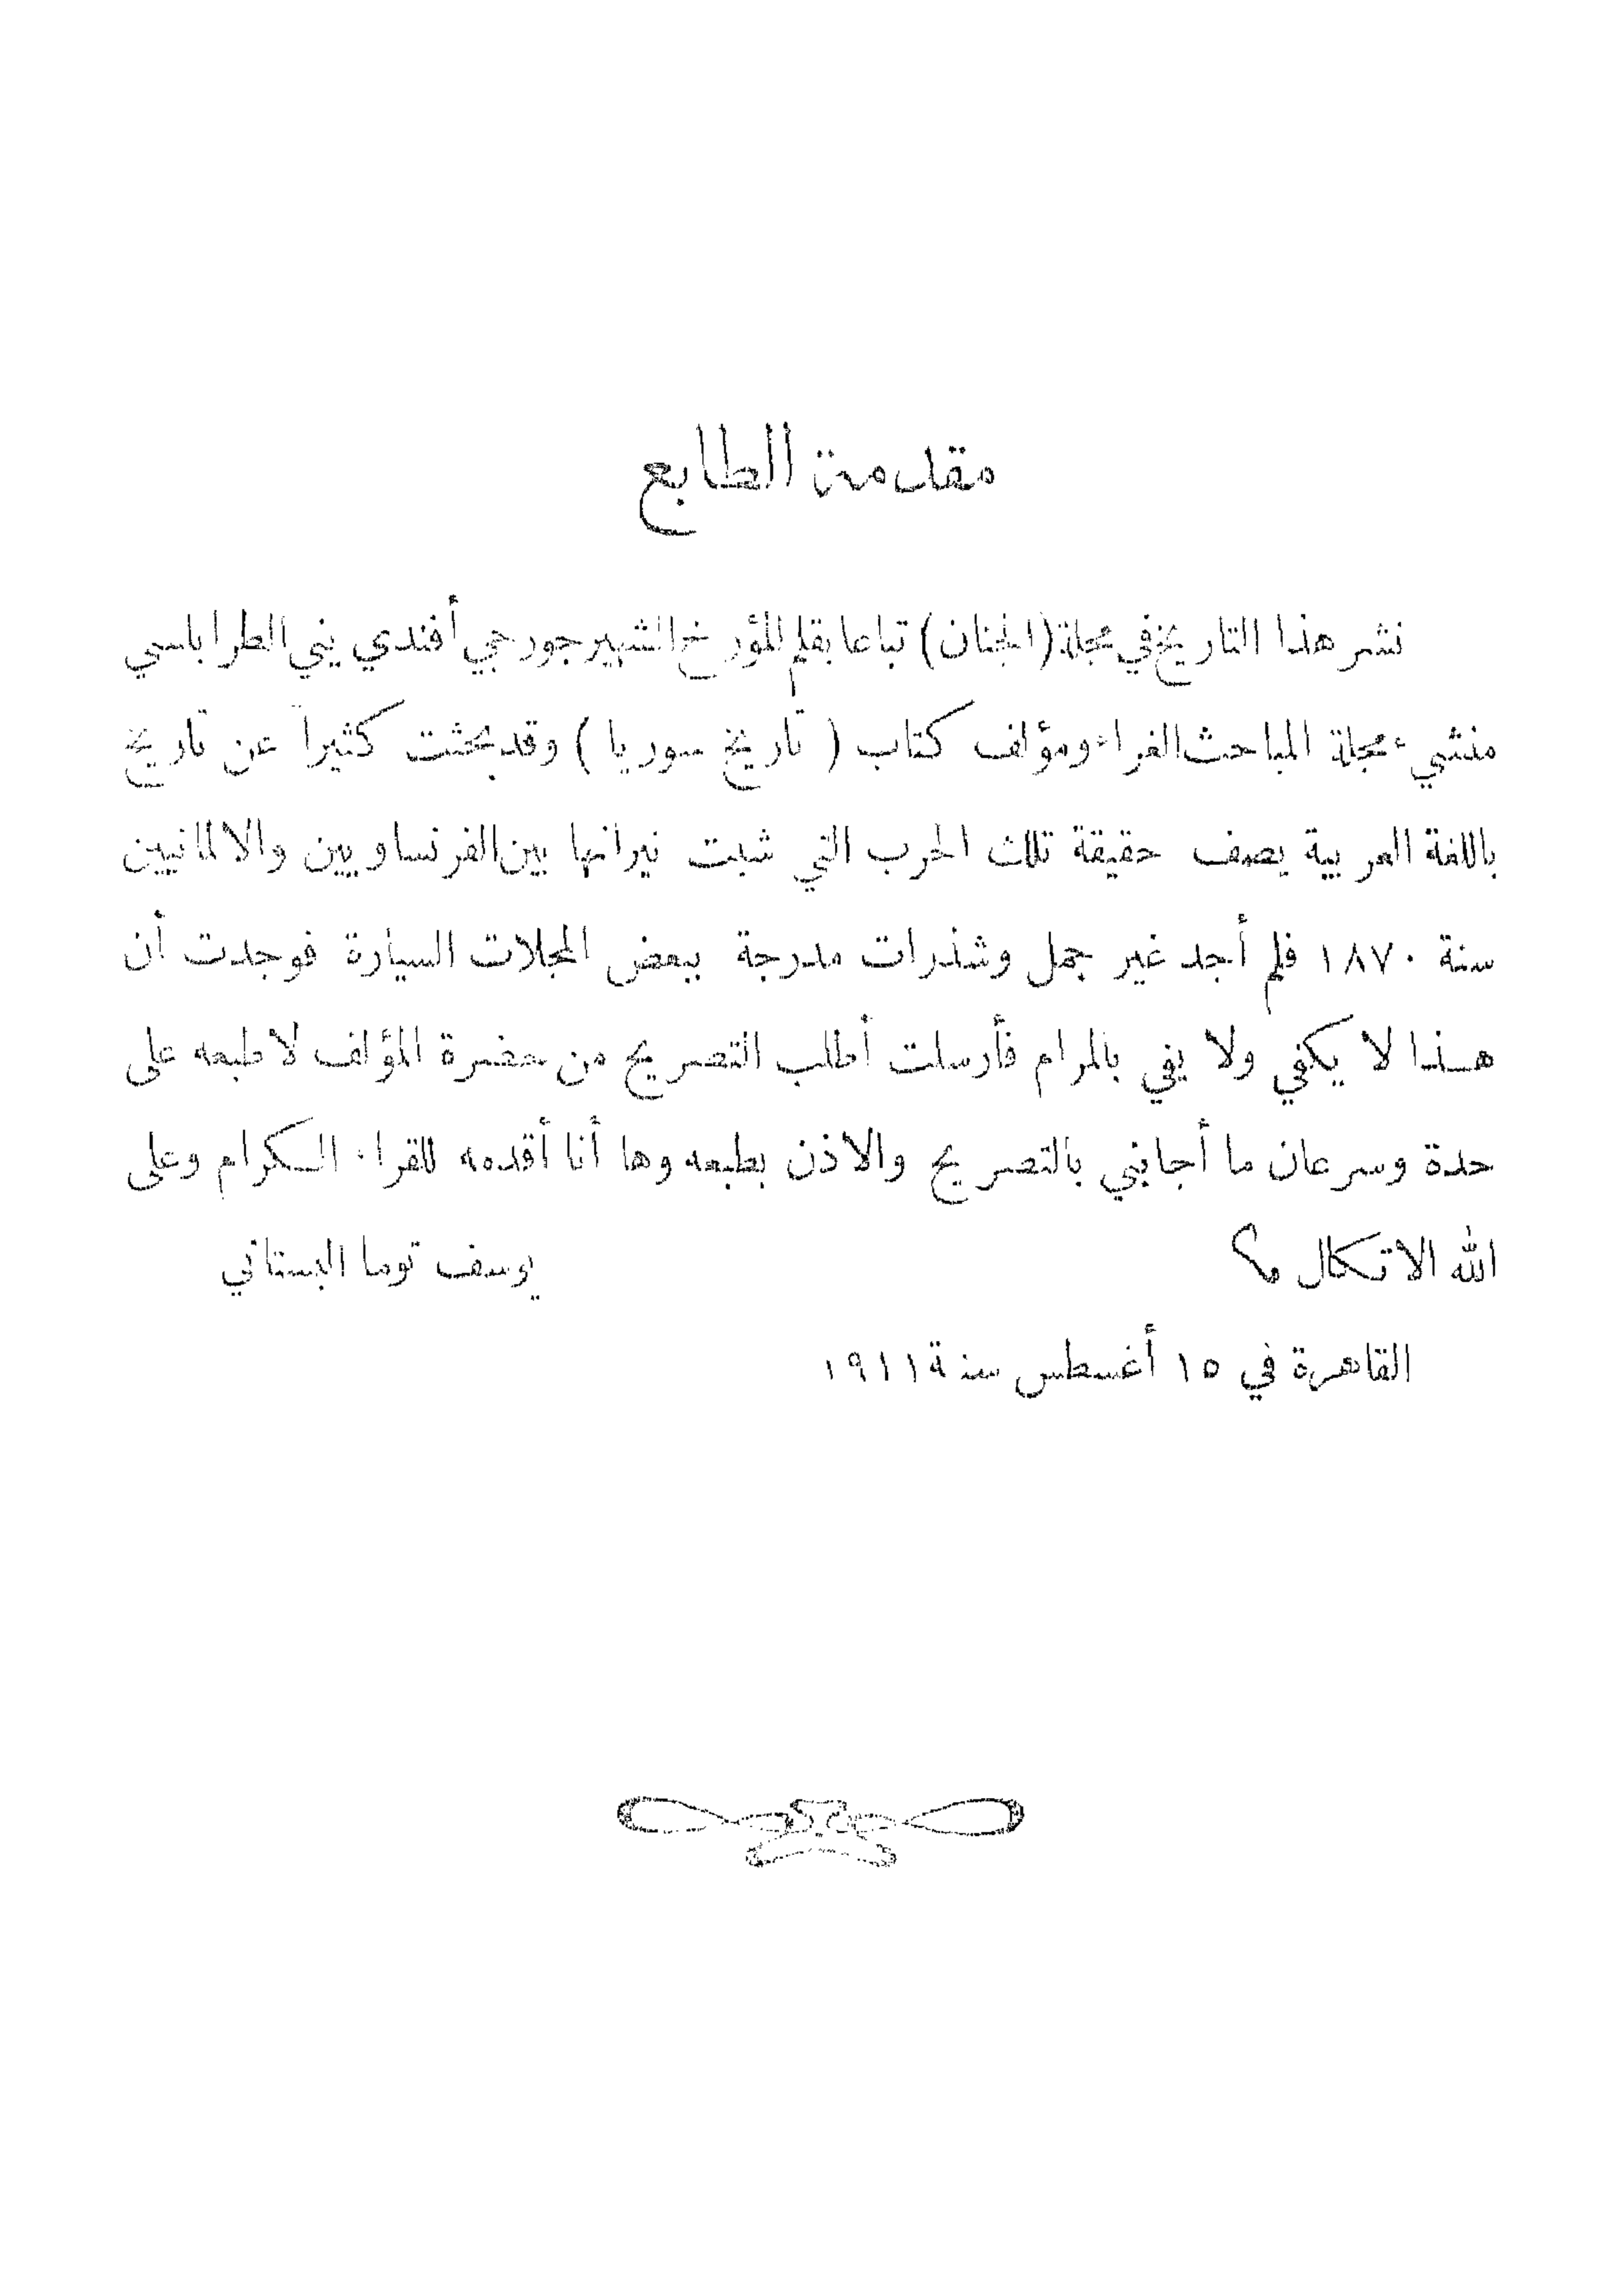 مقدمة الطابع
نشر هذا التاريخ في مجلة (الجنان) تباعا بقلم المؤرخ الشهير جورجي أفندي يني الطرابلسي
منشيء مجلة المباحث الغراء ومؤلف كتاب ( تاريخ سوريا ) وقد بحثت كثيراً عن تاريخ
باللغة العربية يصف حقيقة تلك الحرب التي شبت نيرانها بين الفرنساويين والالمانيين
سنة ١٨٧٠ فلم أجد غير جمل وشذرات مدرجة ببعض المجلات السيارة فوجدت أن
هـذا لا يكفي ولا يفي بالمرام فأرسلت أطلب التصريح من حضرة المؤلف لاطبعه على
حدة وسرعان ما أجابني بالتصريح والاذن بطبعه وها أنا أقدمه للقراء الكرام وعلى
الله الاتكال م؟ يوسف توما البستاني
القاهرة في ١٥ أغسطس سنة ١٩١١